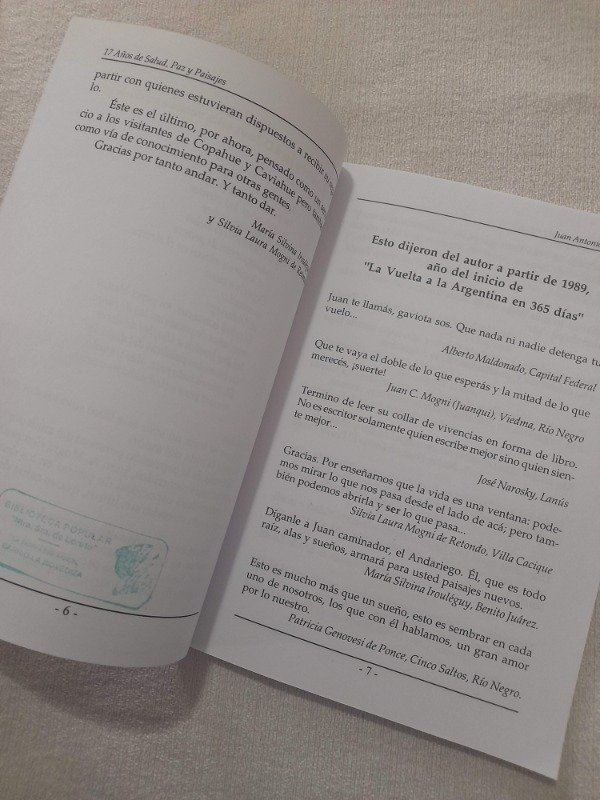 17 Años de Salud, Paz y Paisajes
partir con quienes estuvieran dispuestos a recibir
lo.
Éste es el último, por ahora, pensado como un
cio a los visitantes de Copahue y Caviahue pero
como vía de conocimiento para otras gentes.
Gracias por tanto andar. Y tanto dar.
María Silvina
y Silvia Laura Mogni de
BIBLIOTECA POPULAR
- 6 -
Juan Antonio
Esto dijeron del autor a partir de 1989,
año del inicio de
"La Vuelta a la Argentina en 365 días"
Juan te llamás, gaviota sos. Que nada ni nadie detenga tu
vuelo...
Alberto Maldonado, Capital Federal
Que te vaya el doble de lo que esperás y la mitad de lo que
merecés, ¡suerte!
Juan C. Mogni (Juanqui), Viedma, Río Negro
Termino de leer su collar de vivencias en forma de libro.
No es escritor solamente quien escribe mejor sino quien sien-
te mejor...
José Narosky, Lanús
Gracias. Por enseñarnos que la vida es una ventana: pode-
mos mirar lo que nos pasa desde el lado de acá; pero tam-
bién podemos abrirla y ser lo que pasa...
Silvia Laura Mogni de Retondo, Villa Cacique
Díganle a Juan caminador, el Andariego. Él, que es todo
raíz, alas y sueños, armará para usted paisajes nuevos.
María Silvina Irouléguy, Benito Juárez.
Esto es mucho más que un sueño, esto es sembrar en cada
uno de nosotros, los que con él hablamos, un gran amor
por lo nuestro.
Patricia Genovesi de Ponce, Cinco Saltos, Río Negro.
- 7 -